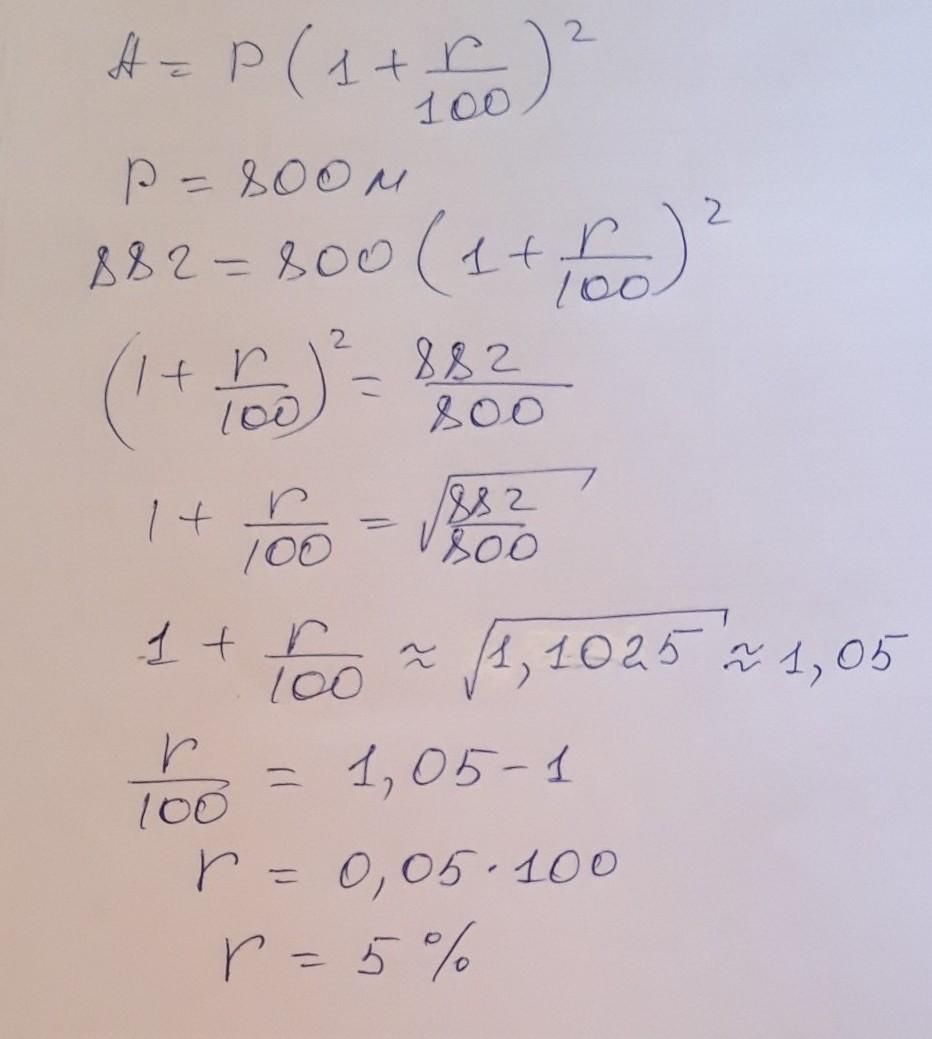 A = P(1 + r/100)²
P = 800 м
882 = 800(1 + r/100)²
(1 + r/100)² = 882/800
1 + r/100 = √(882/800)
1 + r/100 ≈ √1,1025 ≈ 1,05
r/100 = 1,05 - 1
r = 0,05 · 100
r = 5 %